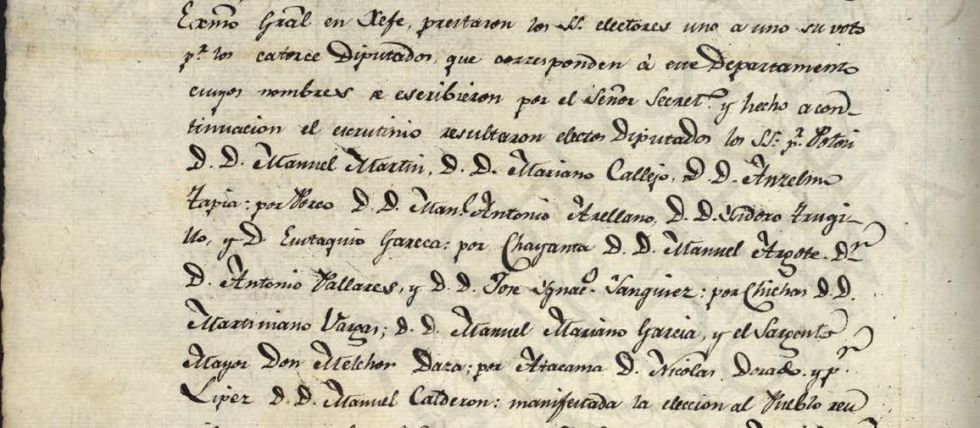 Exmõ Gral en Xefe, prestaron los SS. electores uno a uno su voto
pª los catorce Diputados, que corresponden á este Departamento
cuyos nombres se escribieron por el Señor Secretº y hecho a con-
tinuacion el escrutinio resultaron electos Diputados los SS. pr Potosi
D. D. Manuel Martin, D. D. Mariano Callejo, D. D. Anzelmo
Tapia: por Porco D. D. Manl Antonio Arellano, D. D. Ysidoro Trugi-
llo, y D. Eustaquio Gareca: por Chayanta D. D. Manuel Argote, Dr
D. Antonio Pallares, y D. D. Jose Ygnacº Sanguinez: por Chichas D. D.
Martiniano Vargas; D. D. Manuel Mariano Garcia, y el Sargento
Mayor Don Melchor Daza: por Atacama D. Nicolas Dorado y pr
Lipez D. D. Manuel Calderon: manifestada la eleccion al Pueblo reu